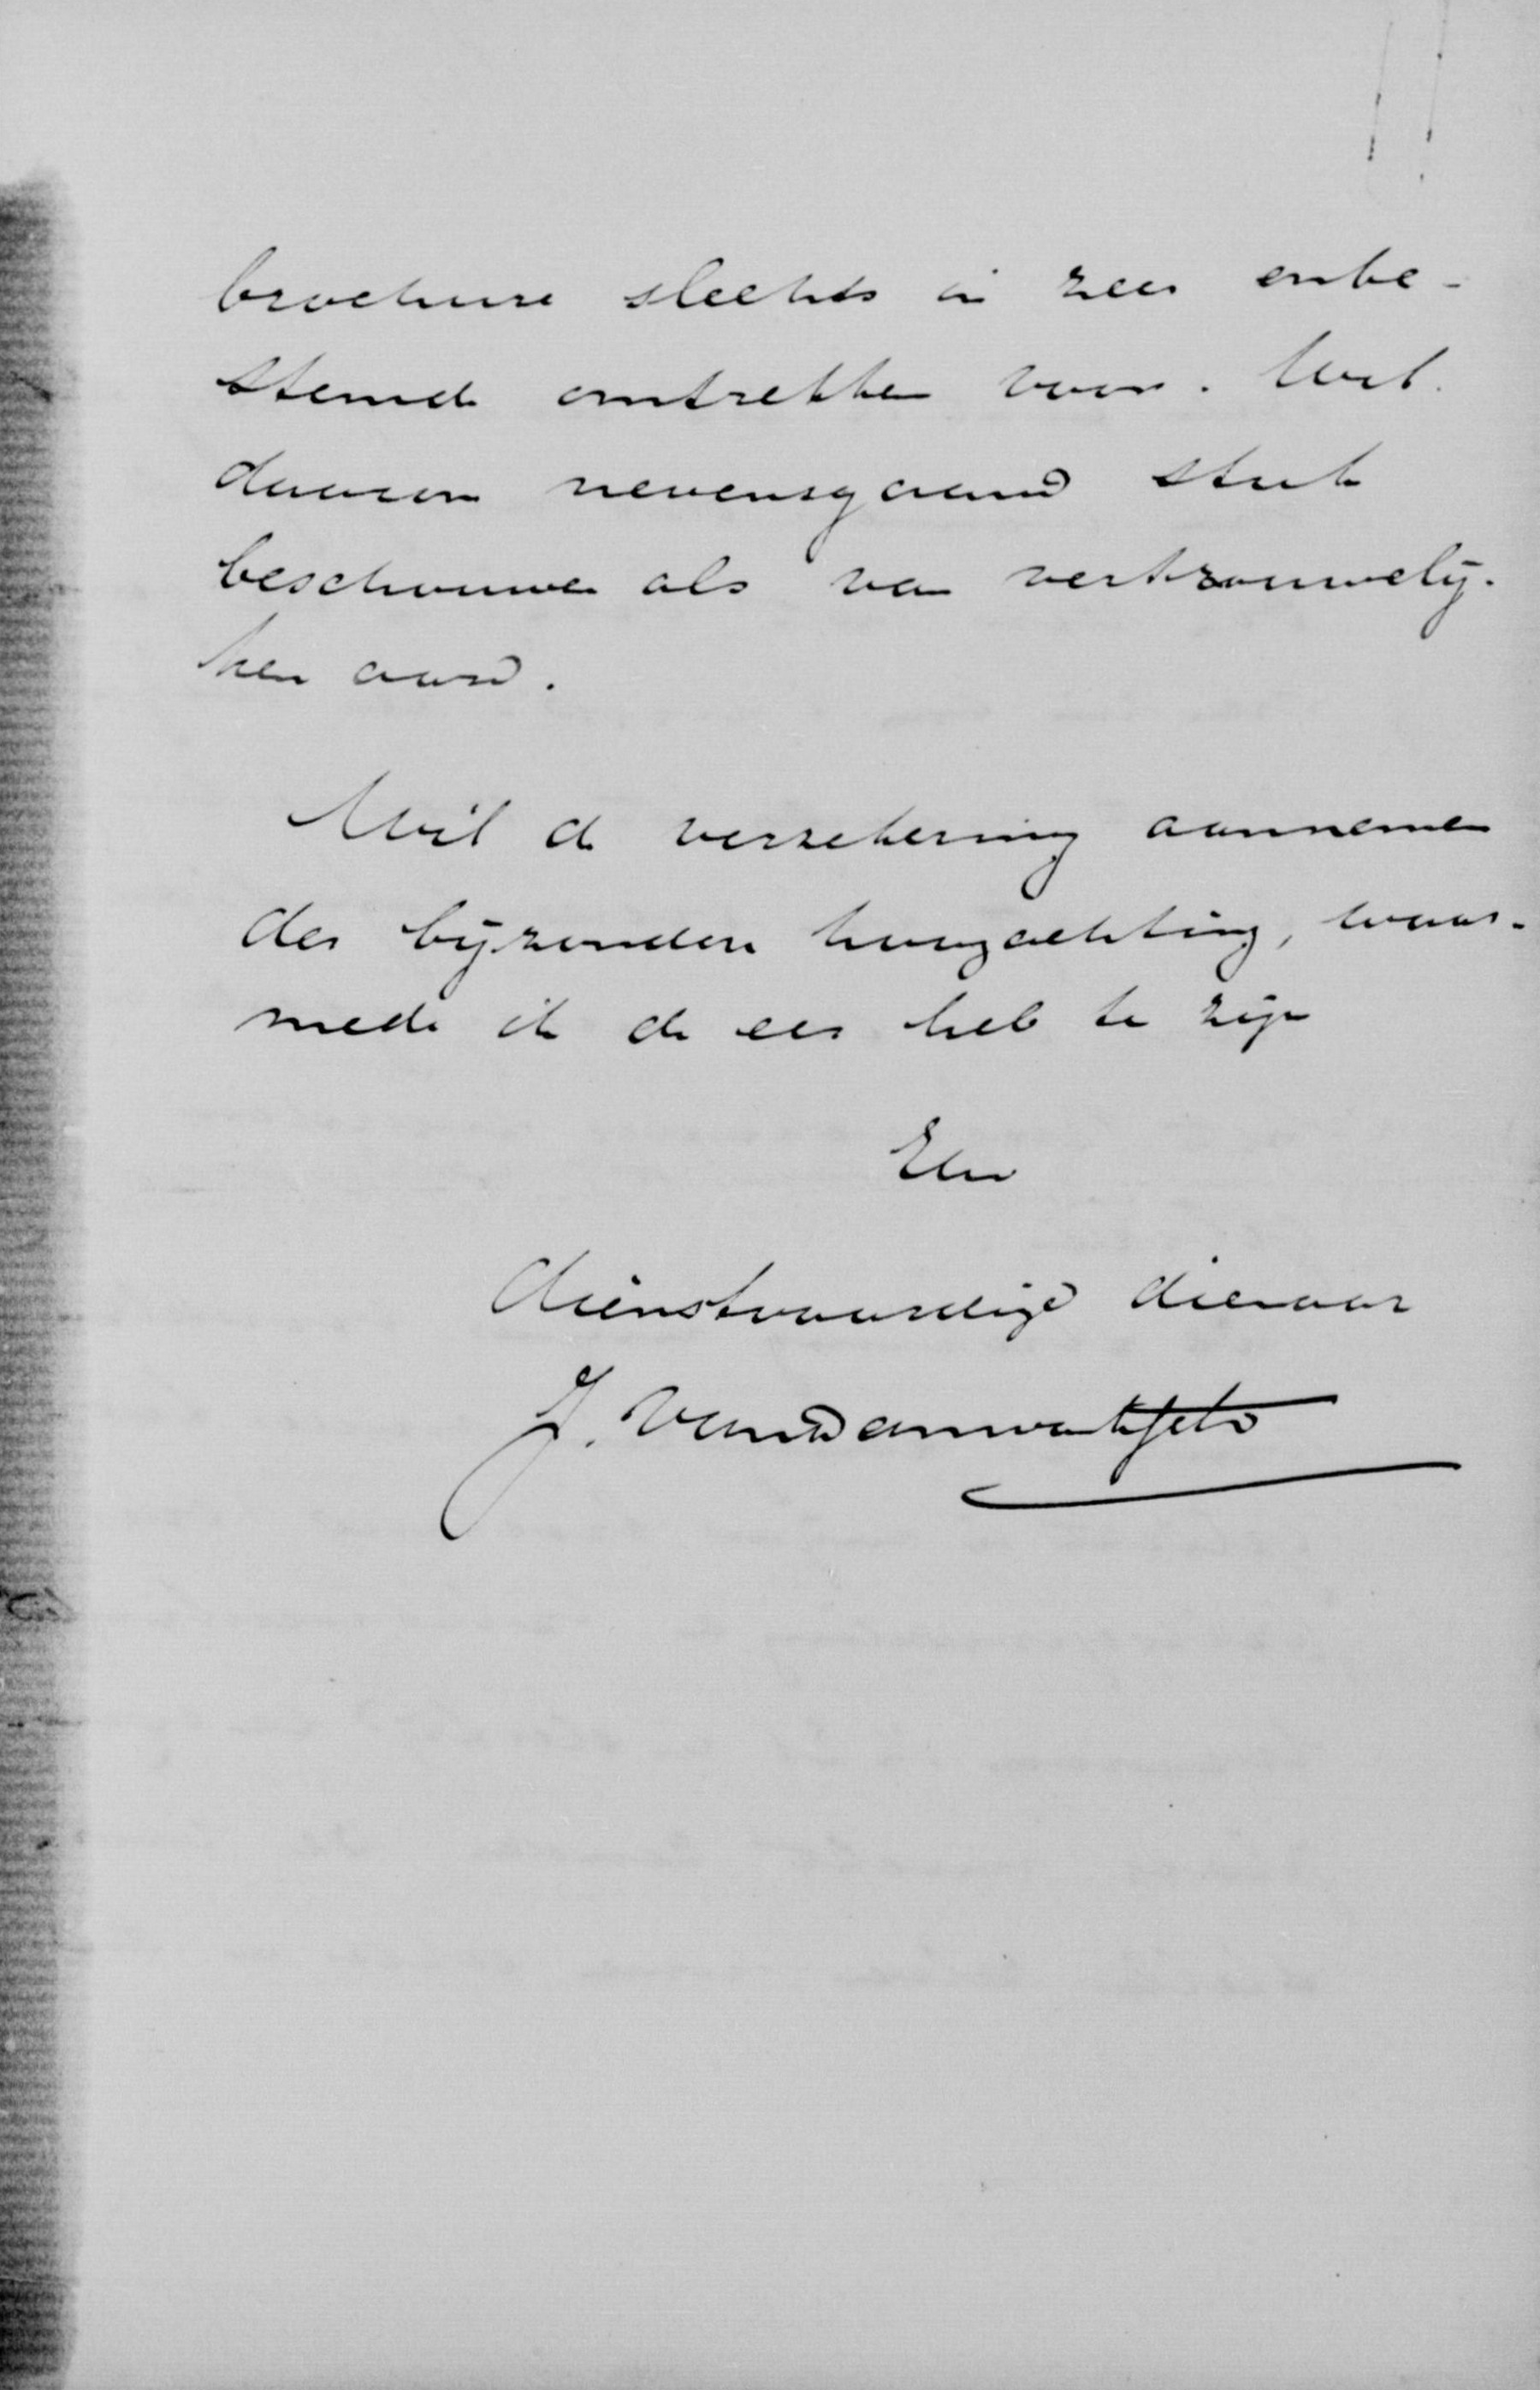 brochure slechts in zeer onbe-
stemde omtrekken voor. Wil
daarom nevensgaand stuk
beschouwen als van vertrouwelij-
ken aard.
Wil de verzekering aannemen
der bijzondere hoogachting, waar-
mede ik de eer heb te zijn
Uw
dienstvaardige dienaar
J.